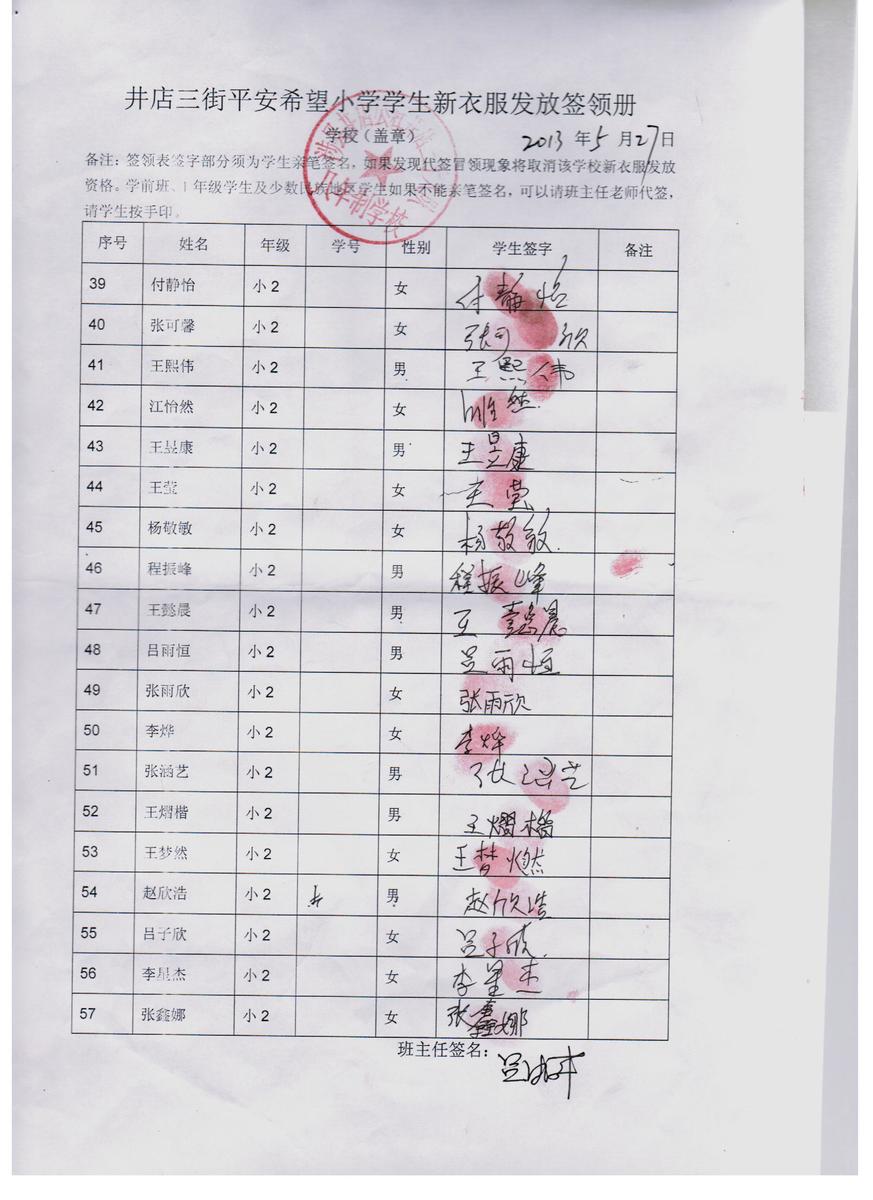 井店三街平安希望小学学生新衣服发放签领册
学校（盖章） 2013 年 5 月 27 日
备注：签领表签字部分须为学生亲笔签名，如果发现代签冒领现象将取消该学校新衣服发放
资格。学前班、1 年级学生及少数民族地区学生如果不能亲笔签名，可以请班主任老师代签，
请学生按手印。
寄制学校
序号 姓名 年级 学号 性别 学生签字 备注
39 付静怡 小 2 女 付静怡
40 张可馨 小 2 女 张可欣
41 王熙伟 小 2 男 王熙伟
42 江怡然 小 2 女
43 王昱康 小 2 男 王昱康
44 王莹 小 2 女 王莹
45 杨敬敏 小 2 女 杨敬敏
46 程振峰 小 2 男 程振峰
47 王懿晨 小 2 男 王懿晨
48 吕雨恒 小 2 男 吕雨恒
49 张雨欣 小 2 女 张雨欣
50 李烨 小 2 女 李烨
51 张涵艺 小 2 男 张涵艺
52 王熠楷 小 2 男 王熠楷
53 王梦然 小 2 女 王梦燃
54 赵欣浩 小 2 男 赵欣浩
55 吕子欣 小 2 女 吕子欣
56 李星杰 小 2 女 李星杰
57 张鑫娜 小 2 女 张鑫娜
班主任签名：